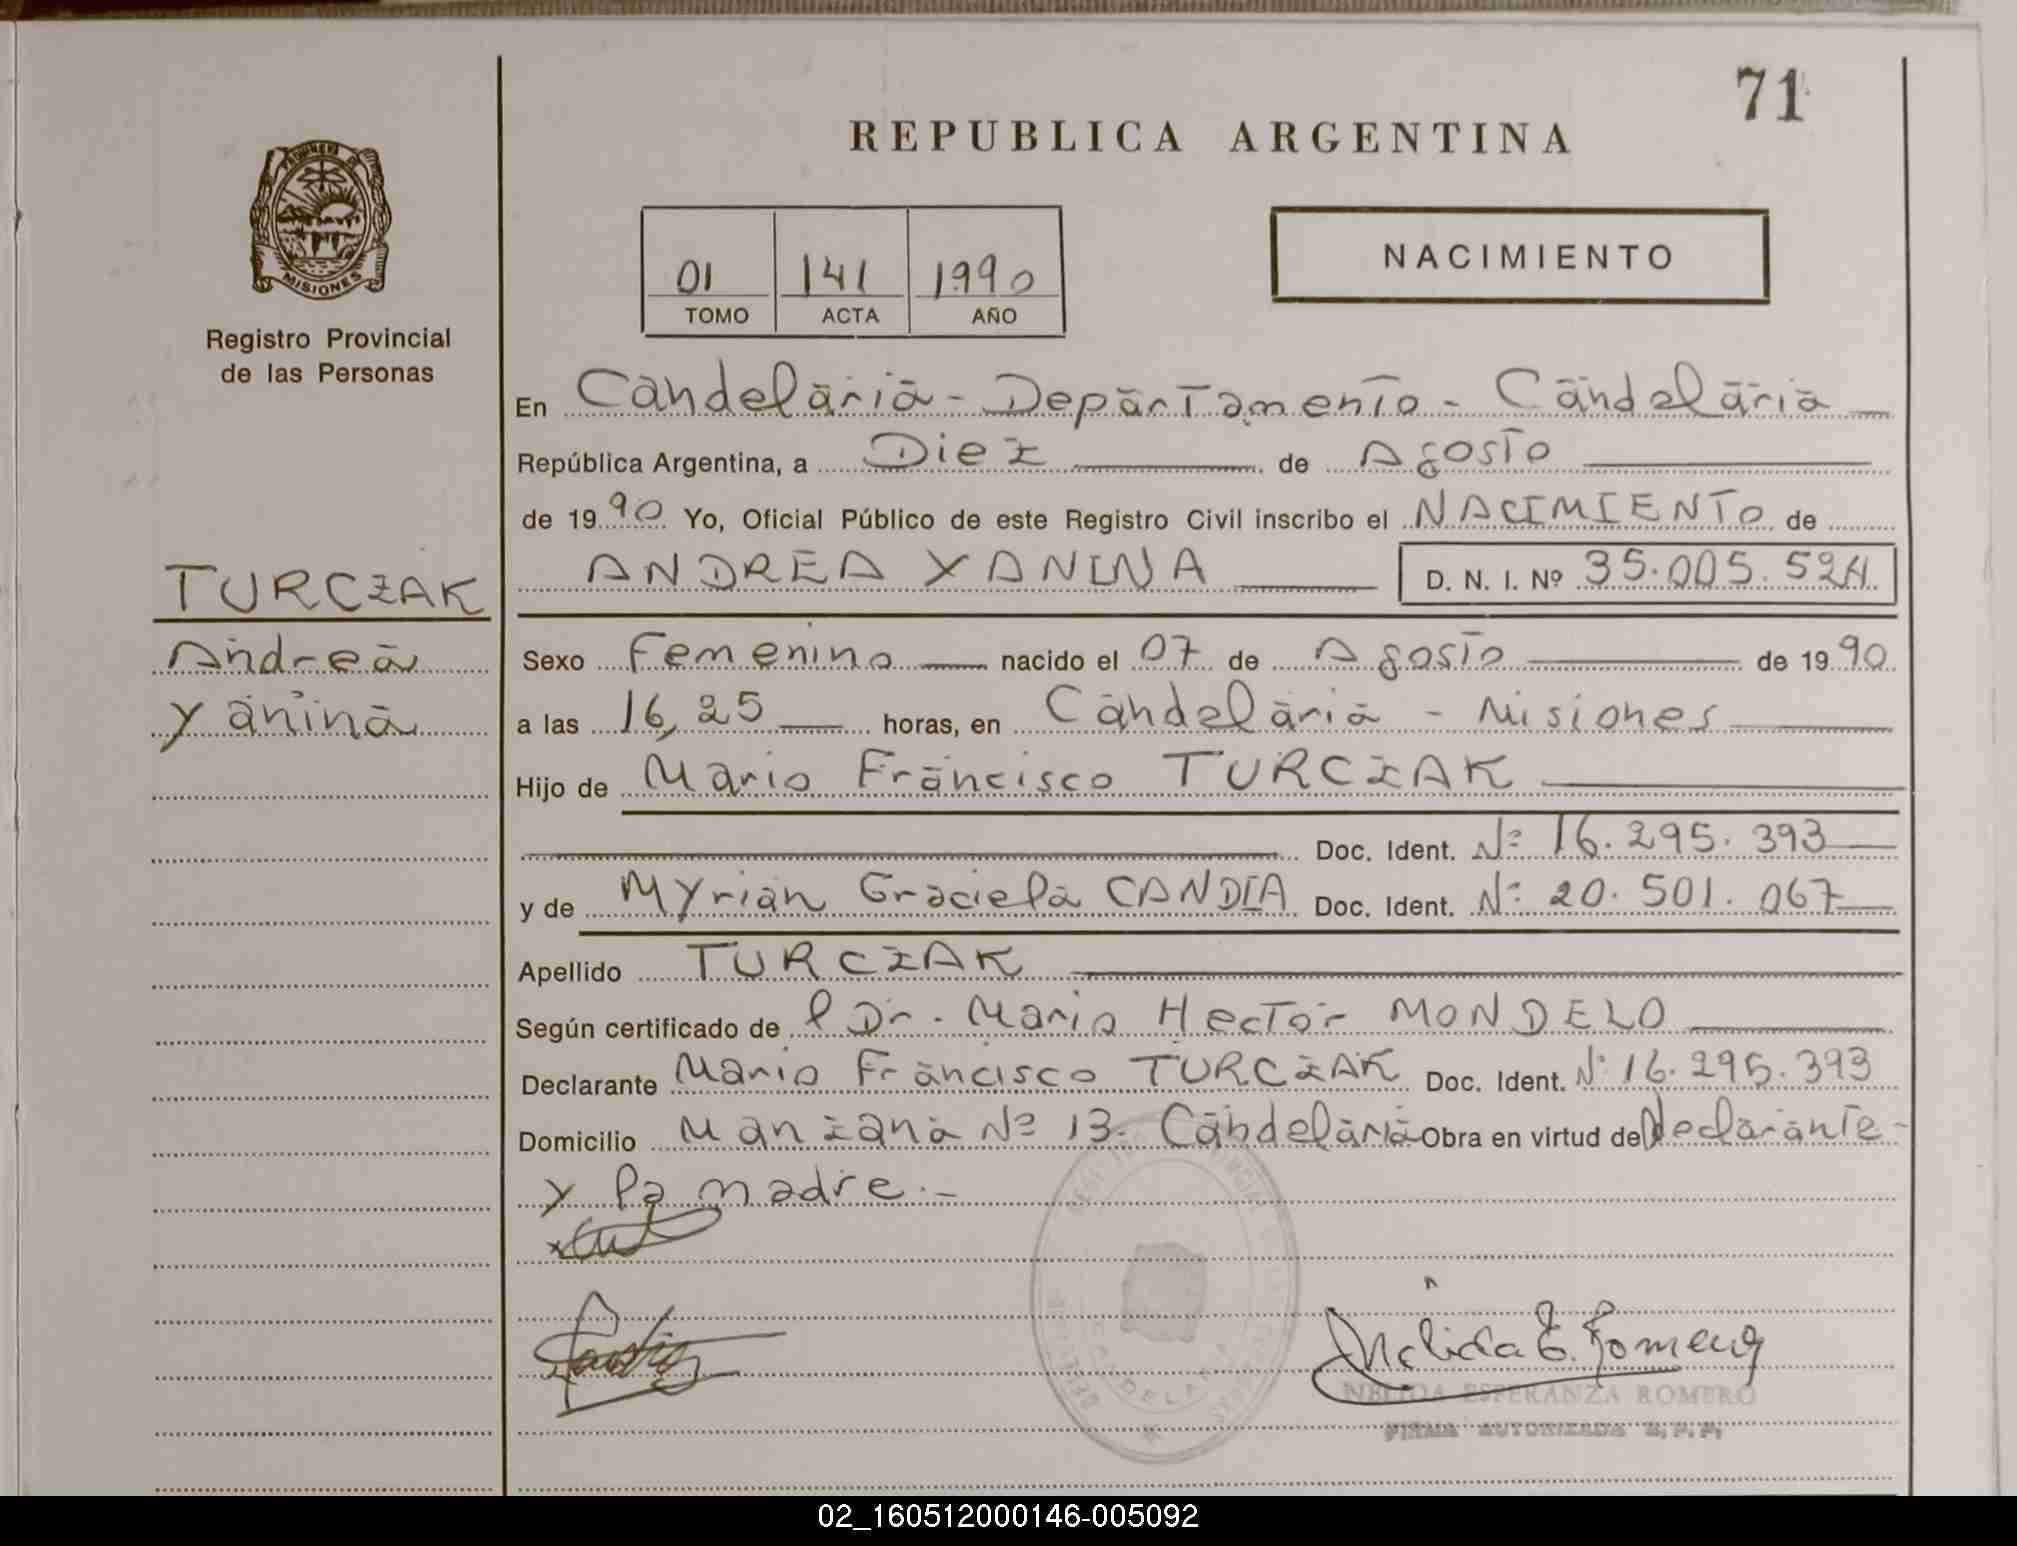 71
REPUBLICA ARGENTINA
PROVINCIA DE
MISIONES
Registro Provincial
de las Personas
01 141 1990
TOMO ACTA AÑO
NACIMIENTO
En Candelaria - Departamento - Candelaria
República Argentina, a Diez de Agosto
de 1990 Yo, Oficial Público de este Registro Civil inscribo el NACIMIENTO de
ANDREA YANINA D. N. I. Nº 35.005.524
TURCZAK
Andrea
Yanina
Sexo Femenino nacido el 07 de Agosto de 1990
a las 16,25 horas, en Candelaria - Misiones
Hijo de Mario Francisco TURCZAK
Doc. Ident. Nº 16.295.393
y de Myrian Graciela CANDIA Doc. Ident. Nº 20.501.067
Apellido TURCZAK
Según certificado de l Dr. Mario Hector MONDELO
Declarante Mario Francisco TURCZAK Doc. Ident. Nº 16.295.393
Domicilio Manzana Nº 13. Candelaria Obra en virtud de Declarante -
y la madre.-
Nélida E. Romero
NELIDA ESPERANZA ROMERO
FIRMA AUTORIZADA R.P.P.
CANDELARIA
02_160512000146-005092